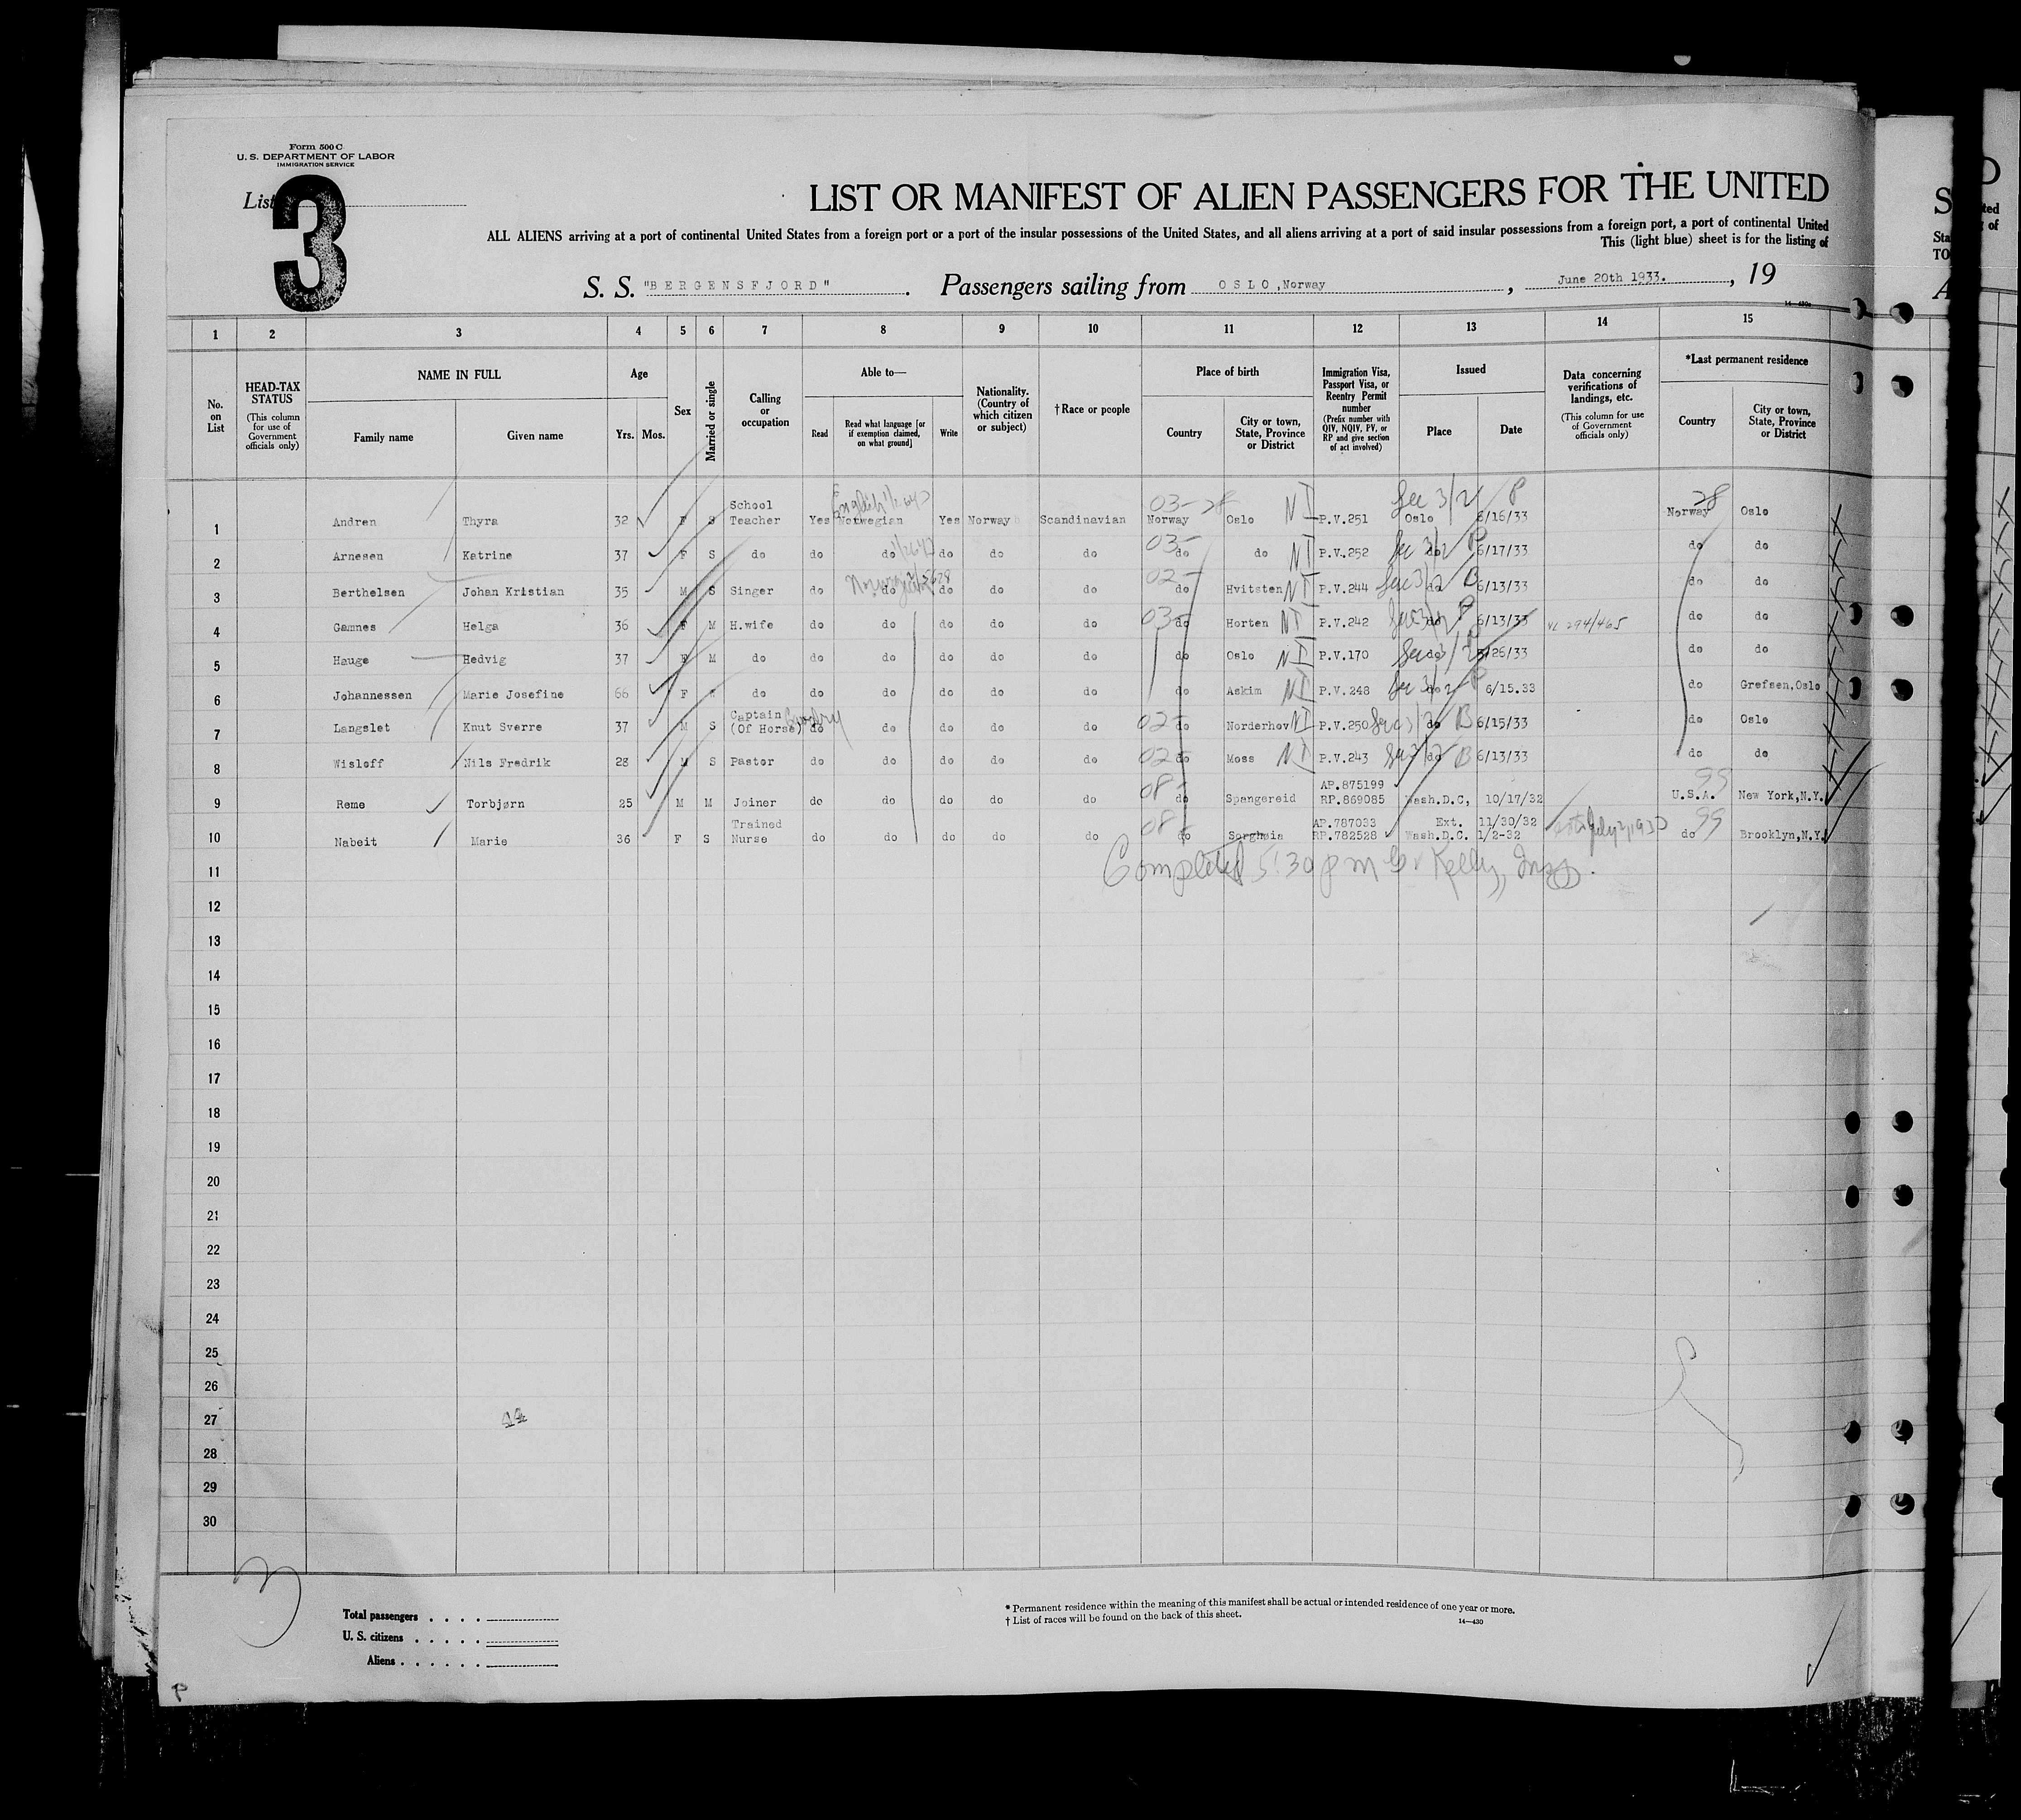 Form 500 C
U. S. DEPARTMENT OF LABOR
IMMIGRATION SERVICE
List
3
LIST OR MANIFEST OF ALIEN PASSENGERS FOR THE UNITED
ALL ALIENS arriving at a port of continental United States from a foreign port or a port of the insular possessions of the United States, and all aliens arriving at a port of said insular possessions from a foreign port, a port of continental United
This (light blue) sheet is for the listing of
S. S. "BERGENSFJORD". Passengers sailing from OSLO, Norway, June 20th 1933., 19
14—430
1 2 3 4 5 6 7 8 9 10 11 12 13 14 15
No. on List
HEAD-TAX STATUS (This column for use of Government officials only)
NAME IN FULL
Family name
Given name
Age
Yrs. Mos.
Sex
Married or single
Calling or occupation
Able to—
Read
Read what language [or if exemption claimed, on what ground]
Write
Nationality. (Country of which citizen or subject)
†Race or people
Place of birth
Country
City or town, State, Province or District
Immigration Visa, Passport Visa, or Reentry Permit number (Prefix number with QIV, NQIV, PV, or RP and give section of act involved)
Issued
Place
Date
Data concerning verifications of landings, etc. (This column for use of Government officials only)
*Last permanent residence
Country
City or town, State, Province or District
1 Andren Thyra 32 F S School Teacher Yes English Norwegian Yes Norway Scandinavian 03-28 Norway Oslo NI P.V.251 Sec 3/2 P Oslo 6/16/33 28 Norway Oslo
2 Arnesen Katrine 37 F S do do do do do do 03- do do NI P.V.252 Sec 3/2 do P 6/17/33 do do
3 Berthelsen Johan Kristian 35 M S Singer do do do do do 02- do Hvitsten NI P.V.244 Sec 3/2 do B 6/13/33 do do
4 Gamnes Helga 36 F M H.wife do do do do do 03- do Horten NI P.V.242 Sec 3/2 do P 6/13/33 294/465 do do
5 Hauge Hedvig 37 F M do do do do do do do Oslo NI P.V.170 Sec 3/2 do P 5/26/33 do do
6 Johannessen Marie Josefine 66 F do do do do do do do Askim NI P.V.248 Sec 3/2 do P 6/15.33 do Grefsen,Oslo
7 Langslet Knut Sverre 37 M S Captain (Of Horse) do do do do do 02- do Norderhov NI P.V.250 Sec 3/2 do B 6/15/33 do Oslo
8 Wisloff Nils Fredrik 28 M S Pastor do do do do do 02- do Moss NI P.V.243 Sec 3/2 do B 6/13/33 do do
9 Reme Torbjørn 25 M M Joiner do do do do do 08- do Spangereid AP.875199 RP.869085 Wash.D.C, 10/17/32 99 U.S.A. New York,N.Y.
10 Nabeit Marie 36 F S Trained Nurse do do do do do 08- do Sorgheia AP.787033 RP.782528 Ext. 11/30/32 Wash.D.C. 1/2-32 July 2, 1933 do 99 Brooklyn,N.Y.
Completed 5:30 pm Kelly, Insp.
11
12
13
14
15
16
17
18
19
20
21
22
23
24
25
26
27
28
29
30
3
Total passengers
U. S. citizens
Aliens
* Permanent residence within the meaning of this manifest shall be actual or intended residence of one year or more.
† List of races will be found on the back of this sheet.
14—430
P